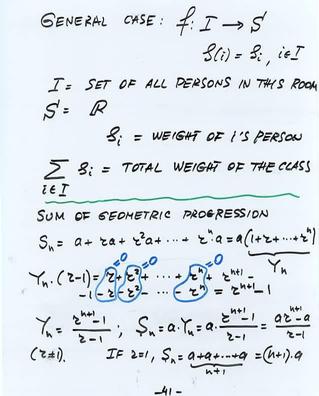 GENERAL CASE: f: I → S
s(i) = si, i∈I
I = SET OF ALL PERSONS IN THIS ROOM
S = ℝ
si = WEIGHT OF i'S PERSON
∑ i∈I si = TOTAL WEIGHT OF THE CLASS
SUM OF GEOMETRIC PROGRESSION
Sn = a + ra + r²a + ··· + rⁿa = a(1+r+···+rⁿ)
Yn
=0 =0 =0
Yn·(r-1) = r + r² + ··· + rⁿ + rⁿ⁺¹ -
-1 - r - r² - ··· - rⁿ = rⁿ⁺¹-1
Yn = rⁿ⁺¹-1 / r-1 ; Sn = a·Yn = a· rⁿ⁺¹-1 / r-1 = arⁿ⁺¹-a / r-1
(r≠1). IF r=1, Sn = a+a+···+a = (n+1)·a
n+1
-41-